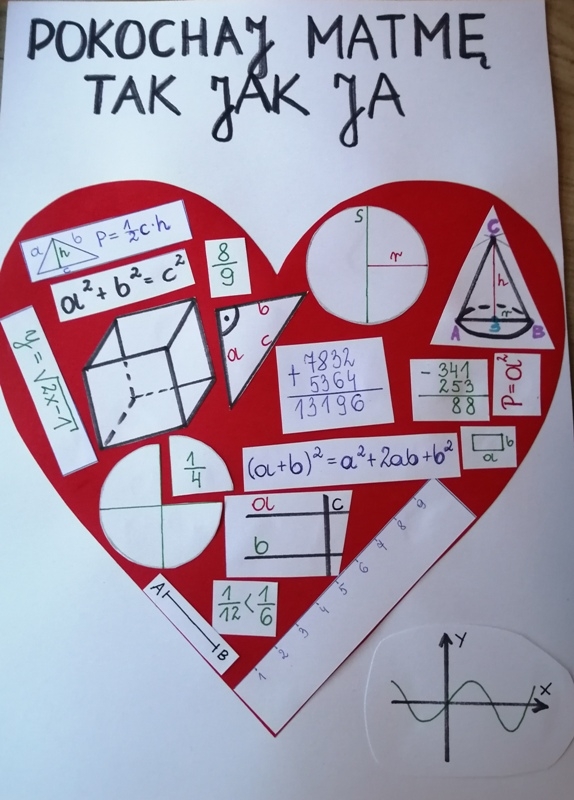 POKOCHAJ MATMĘ
TAK JAK JA
a h b c P=½c·h
a²+b²=c²
8/9
S r
C h r A S B
y=√2x-1
b a c
+7832
5364
13196
-341
253
88
P=a²
1/4
(a+b)²=a²+2ab+b²
b
a
a c
b
A B
1/12<1/6
1 2 3 4 5 6 7 8 9
Y
X